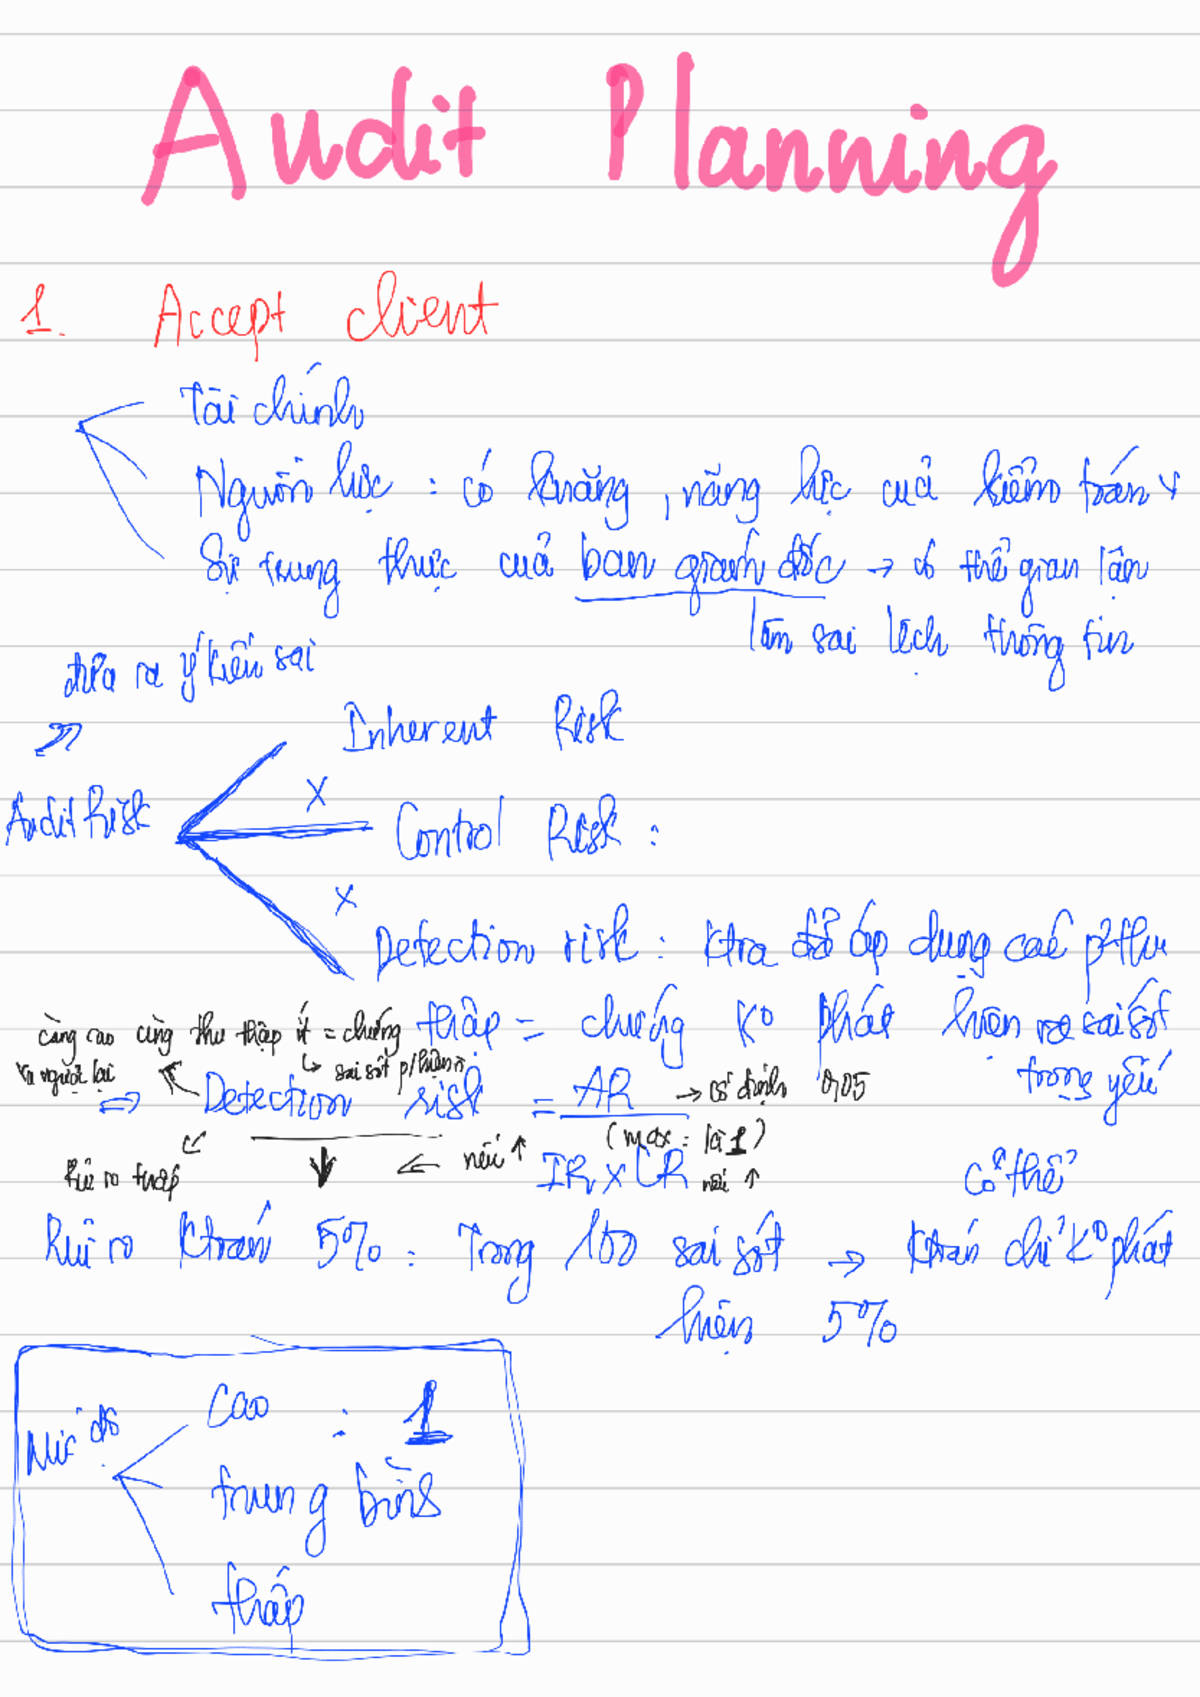 Audit Planning
1. Accept client
Tài chính
Nguồn lực : có k năng, năng lực cuả kiểm toán v
Sự trung thực cuả ban giánh đốc → có thể gian lận
làm sai lệch thông tin
đưa ra ý kiến sai
Inherent Risk
X
Audit Risk
Control Risk :
X
Detection risk : Ktra đã áp dụng các thu
thập = chứng K° phát hiện ra sai sót
trọng yếu
càng cao càng thu thập ít = chứng
và ngược lại
↳ sai sót p/hiện
⇒ Detection risk = AR → cố định 0,05
(max : là 1)
IR x CR nếu ↑
← nếu ↑
Rủi ro thấp
có thể
Rủi ro Ktoán 5% : Trong 100 sai sót → Ktoán chỉ K° phát
hiện 5%
Mức độ
cao : 1
trung bình
thấp